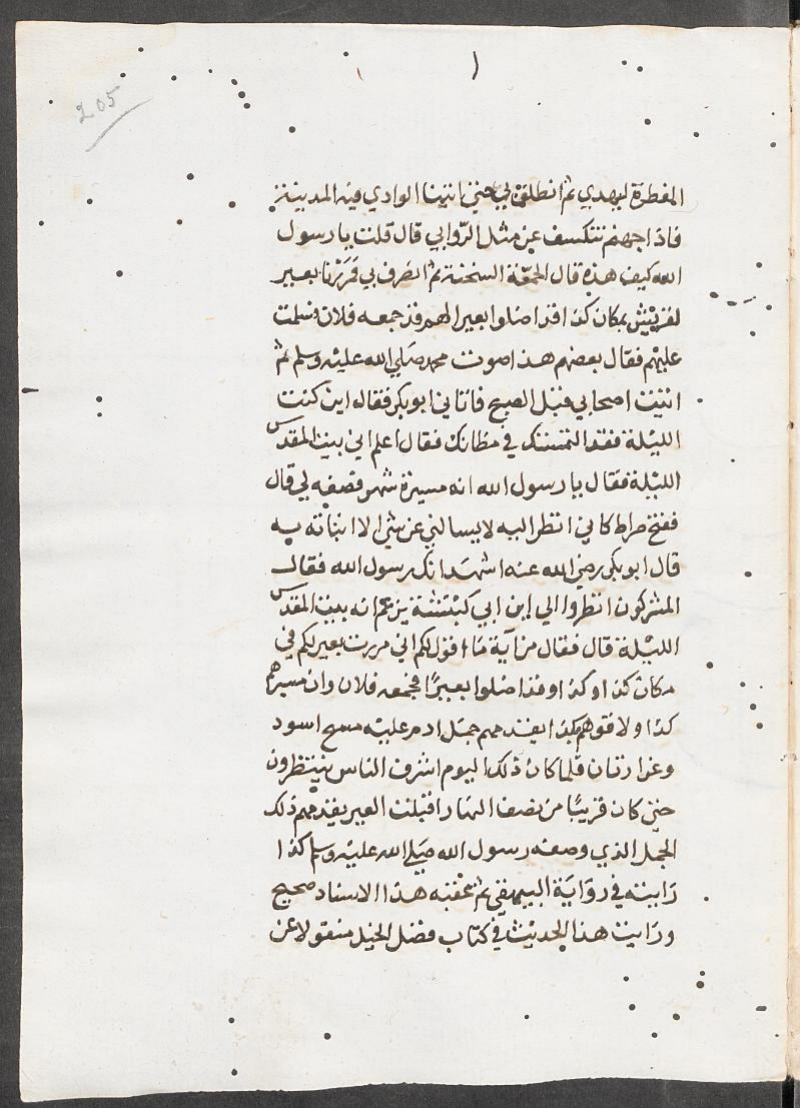 205
١
الفطرة ليهدي ثم انطلق بي حتي اتينا الوادي فيه المدينة
فاذا جهنم تنكسف عن مثل الروابي قال قلت يا رسول
الله كيف هذه قال الحمّة السخنة ثم انصرف بي فمررنا بعير
لقريش بمكان كذا قد اضلوا بعيرا لهم قد جمعه فلان فسلمت
عليهم فقال بعضهم هذا صوت محمد صلي الله عليه وسلم ثم
اتيت اصحابي قبل الصبح فاتاني ابو بكر فقال اين كنت
الليلة فقد التمستك في مظانك فقال اعلم اني بيت المقدس
الليلة فقال يا رسول الله انه مسيرة شهر فصفه لي قال
ففتح صراط كاني انظر اليه لا يسالني عن شي الا انباته به
قال ابو بكر رضي الله عنه اشهد انك رسول الله فقال
المشركون انظروا الي ابن ابي كبشة يزعم انه بيت المقدس
الليلة قال فقال من آية ما اقول لكم اني مررت بعير لكم في
مكان كذا وكذا وقد اضلوا بعيرًا فجمعه فلان وان مسيرهم
كذا ولاقوهم بكذا يقدمهم جمل ادم عليه مسح اسود
وغرارتان فلما كان ذلك اليوم اشرف الناس ينتظرون
حتي كان قريبًا من نصف النهار اقبلت العير يقدمهم ذلك
الجمل الذي وصفه رسول الله صلي الله عليه وسلم كذا
رايته في رواية البيهقي ثم عقبه هذا الاسناد صحيح
ورايت هذا الحديث في كتاب فضل الخيل منقولا عن